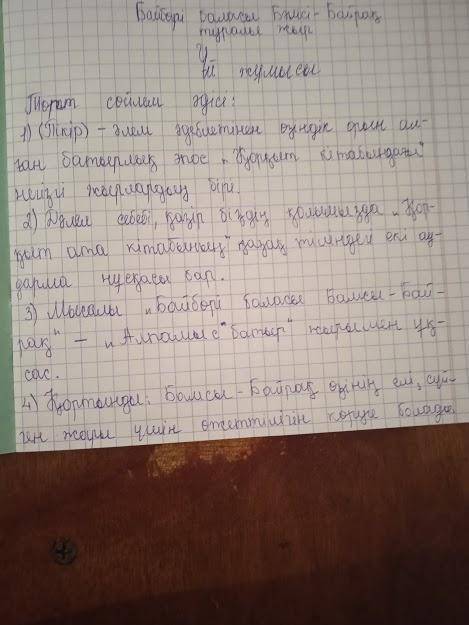 Байбөрі баласы Бамсы-Байрақ
туралы жыр
Үй жұмысы
Төрт сөйлем әдісі:
1) (Пікір) – әлем әдебиетінен өзіндік орын ал-
ған батырлық эпос „Қорқыт кітабындағы"
негізгі жырлардың бірі.
2) Дәлел себебі, қазір біздің қолымызда „Қор-
қыт ата кітабының" қазақ тіліндегі екі ау-
дарма нұсқасы бар.
3) Мысалы „Байбөрі баласы Бамсы-Бай-
рақ" – „Алпамыс батыр" жырымен ұқ-
сас.
4) Қортынды: Бамсы-Байрақ өзінің елі, сүй-
ген жары үшін өжеттілігін көруге болады.